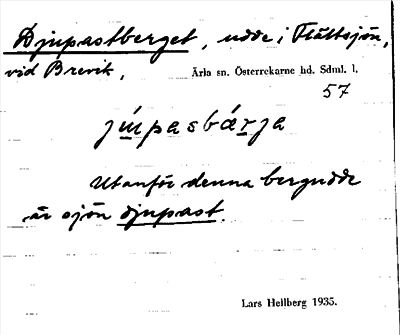 Djupastberget, udde i Flättsjön,
vid Brevik,
Ärla sn. Österrekarne hd. Sdml. l.
57
Utanför denna bergudde
är sjön djupast.
Lars Hellberg 1935.